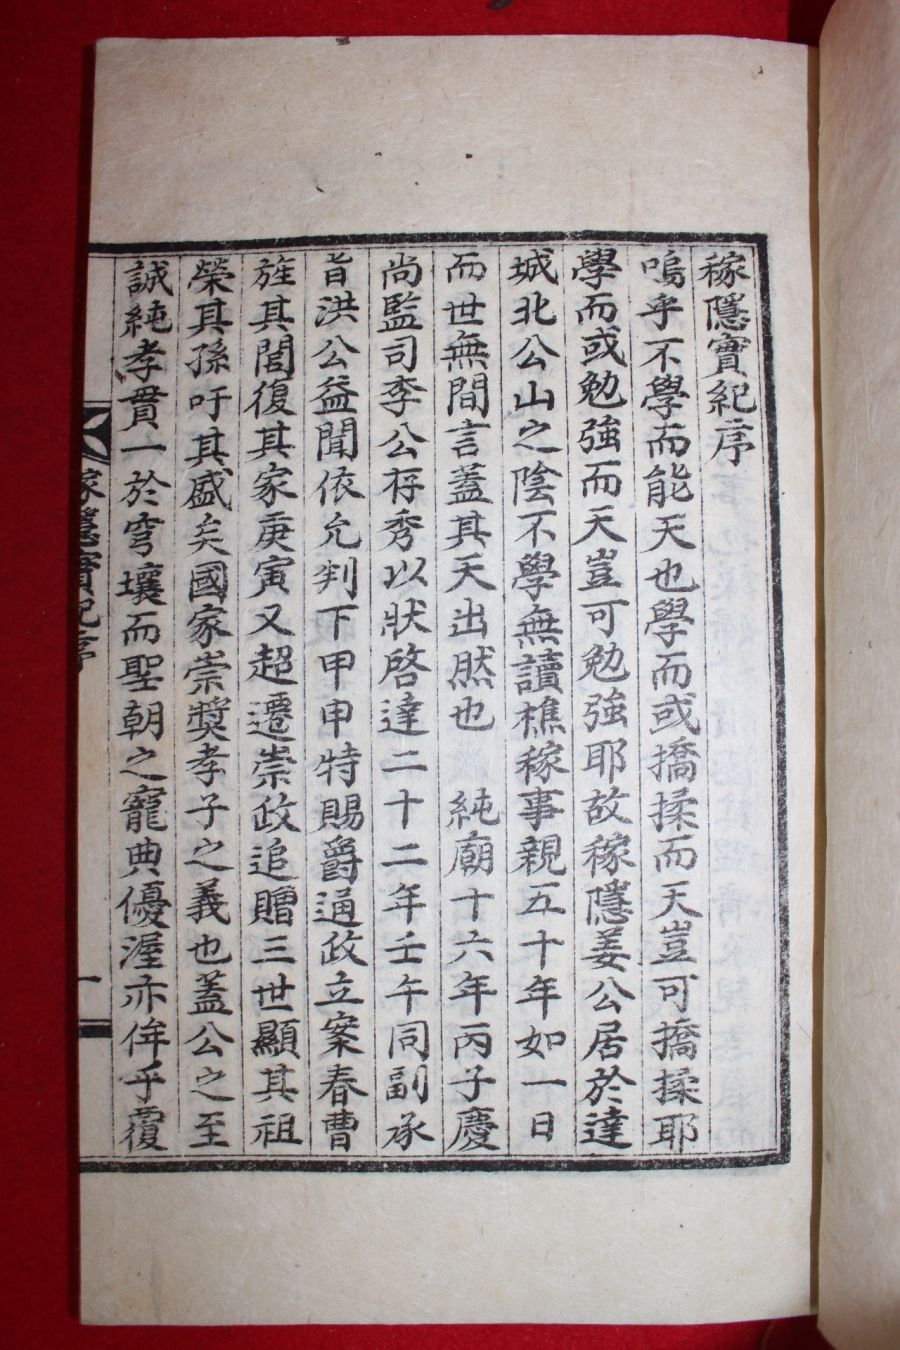 稼隱實紀序
嗚乎不學而能天也學而或撟揉而天豈可撟揉耶
學而或勉強而天豈可勉強耶故稼隱姜公居於達
城北公山之陰不學無讀樵稼事親五十年如一日
而世無間言蓋其天出然也 純廟十六年丙子慶
尚監司李公存秀以狀啓達二十二年壬午同副承
旨洪公益聞依允判下甲申特賜爵通政立案春曹
旌其閭復其家庚寅又超遷崇政追贈三世顯其祖
榮其孫吁其盛矣國家崇獎孝子之義也蓋公之至
誠純孝貫一於穹壤而聖朝之寵典優渥亦侔乎覆
稼隱實紀序 一